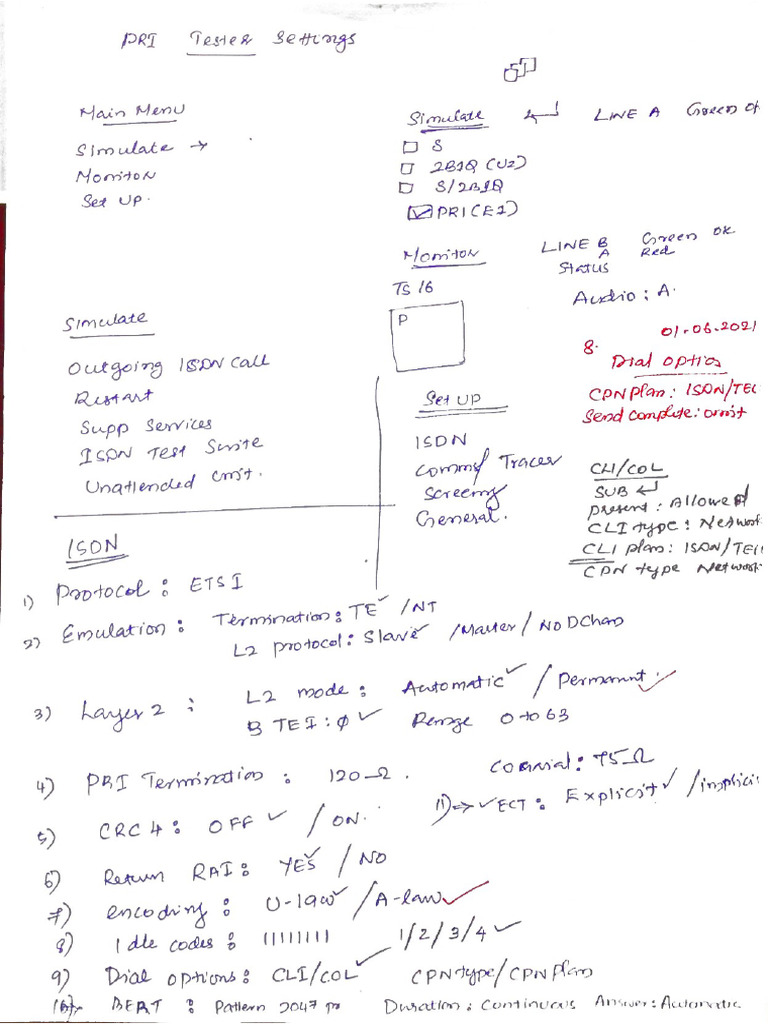 PRI Tester Settings
Main Menu
Simulate →
Moniton
Set UP.
Simulate ↵ LINE A Green ok
☐ S
☐ 2B1Q (U2)
☐ S/2B1Q
☑ PRI(E1)
Moniton
LINE B Green ok
A Red
Status
TS 16
P
Audio: A.
Simulate
Outgoing ISDN Call
Restart
Supp Services
ISDN Test Suite
Unattended
Set UP
ISDN
Comms/ Tracer
General.
01.06.2021
8. Dial option
CPN plan: ISDN/TEL
Send complete: omit
CLI/COL
SUB ↵
present: Allowed
CLI type: Network
CLI plan: ISDN/TEL
CPN type Network
ISDN
1) Protocol: ETSI
2) Emulation: Termination: TE ✓ /NT
L2 protocol: Slave ✓ /Master/
3) Layer 2: L2 mode: Automatic ✓ / Permanent ✓
B TEI: φ ✓ Range 0 to 63
4) PRI Termination: 120 Ω. Coaxial: 75 Ω
11) ⇒ ✓ ECT: Explicit ✓ /implicit
5) CRC4: OFF ✓ / ON.
6) Return RAI: YES ✓ / NO
7) encoding: U-law ✓ /A-law ✓
8) Idle codes: 11111111 1/2/3/4 ✓
9) Dial options: CLI/COL ✓ CPN type/CPN Plan
10) BERT: Pattern 2047 Duration: Continuous Answer: Automatic